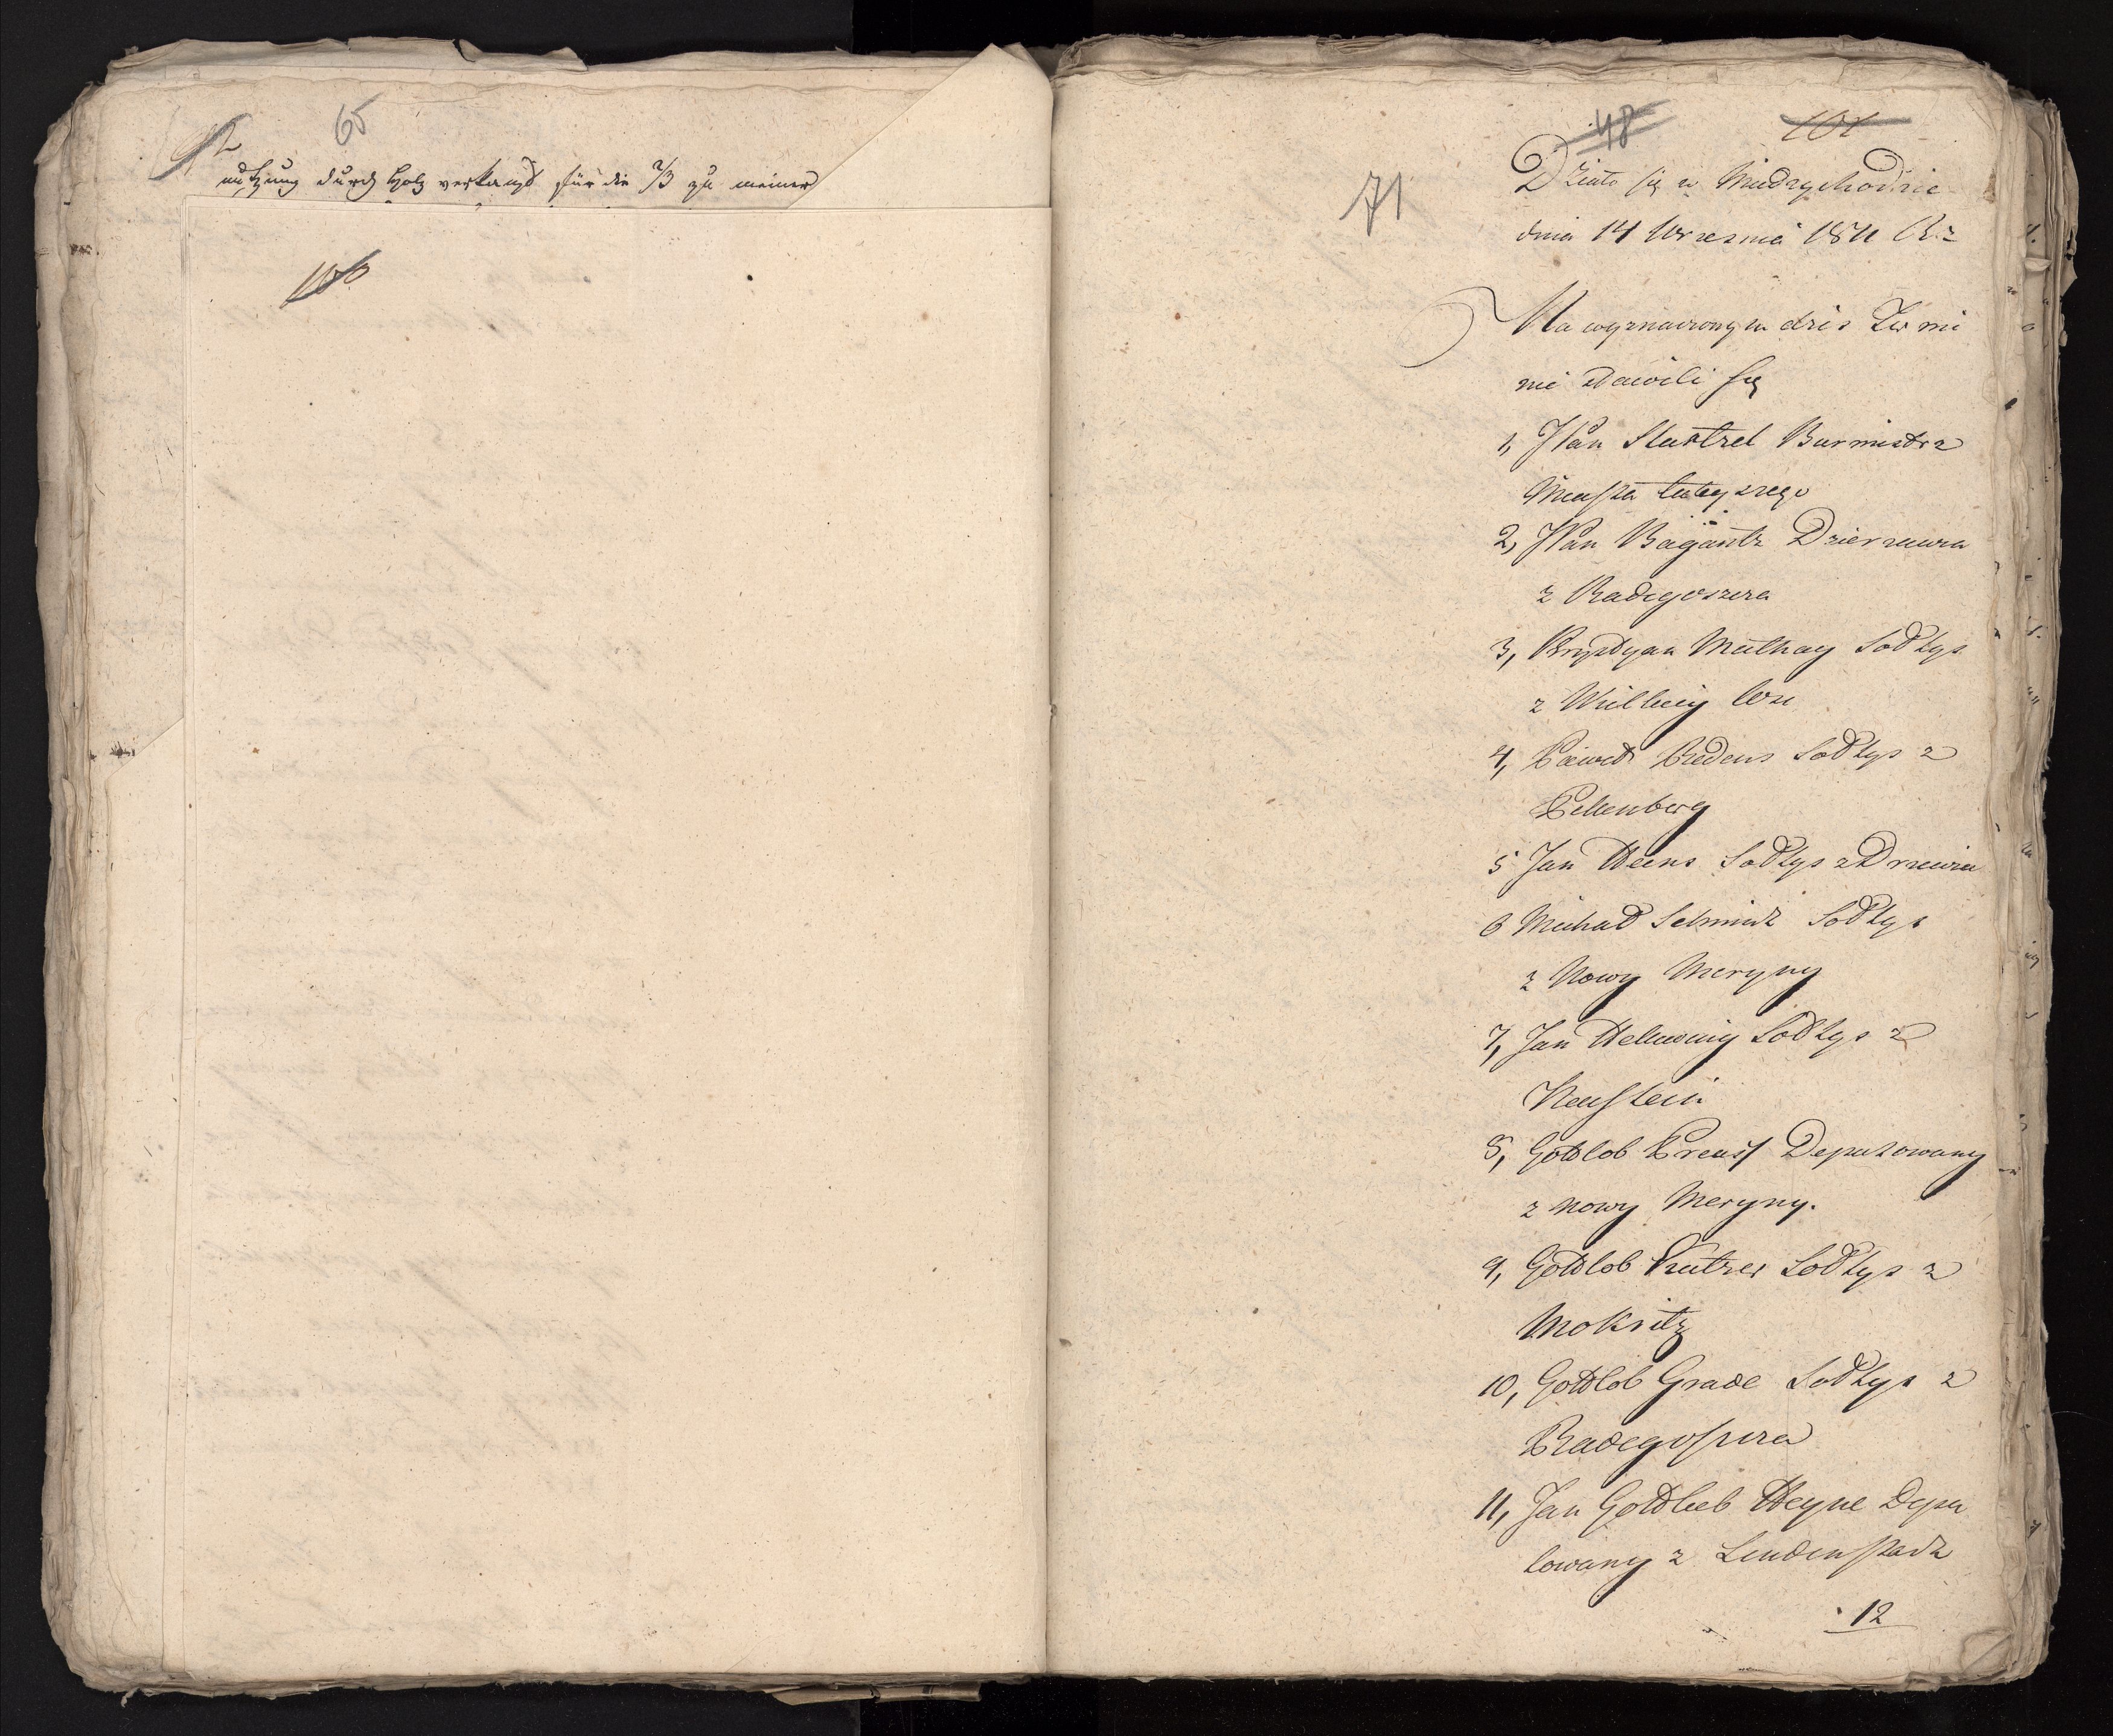 65
nutzung durch Holz verkauft für die 2/3 zu meiner
100
48 101
71
Działo się w Miedzychodzie
dnia 14 Wrzesnia 1811 R:
Na wyznaczonym dzis Termi
nie stawili się
1, JPan Stertzel Burmistrz
Miasta tuteyszego
2, JPan Bagantz Dzierzawca
z Radegoszcza
3, Krystyan Muthay Soltys
z Wielkiey Wsi
4, Pawel Redens Soltys z
Kellenberg
5 Jan Heens Soltys z Drzewca
6 Michael Schmidt Soltys
z Nowy Meryny
7, Jan Hellwwig Soltys z
Neustein
8, Gottlob Preuss Deputowany
z Nowy Meryny.
9, Gottlob Kutzer Soltys z
Mokritz
10, Gottlob Grade Soltys z
Radegoszcza
11, Jan Gottlieb Heyne Depu
towany z Lindenstadt
12